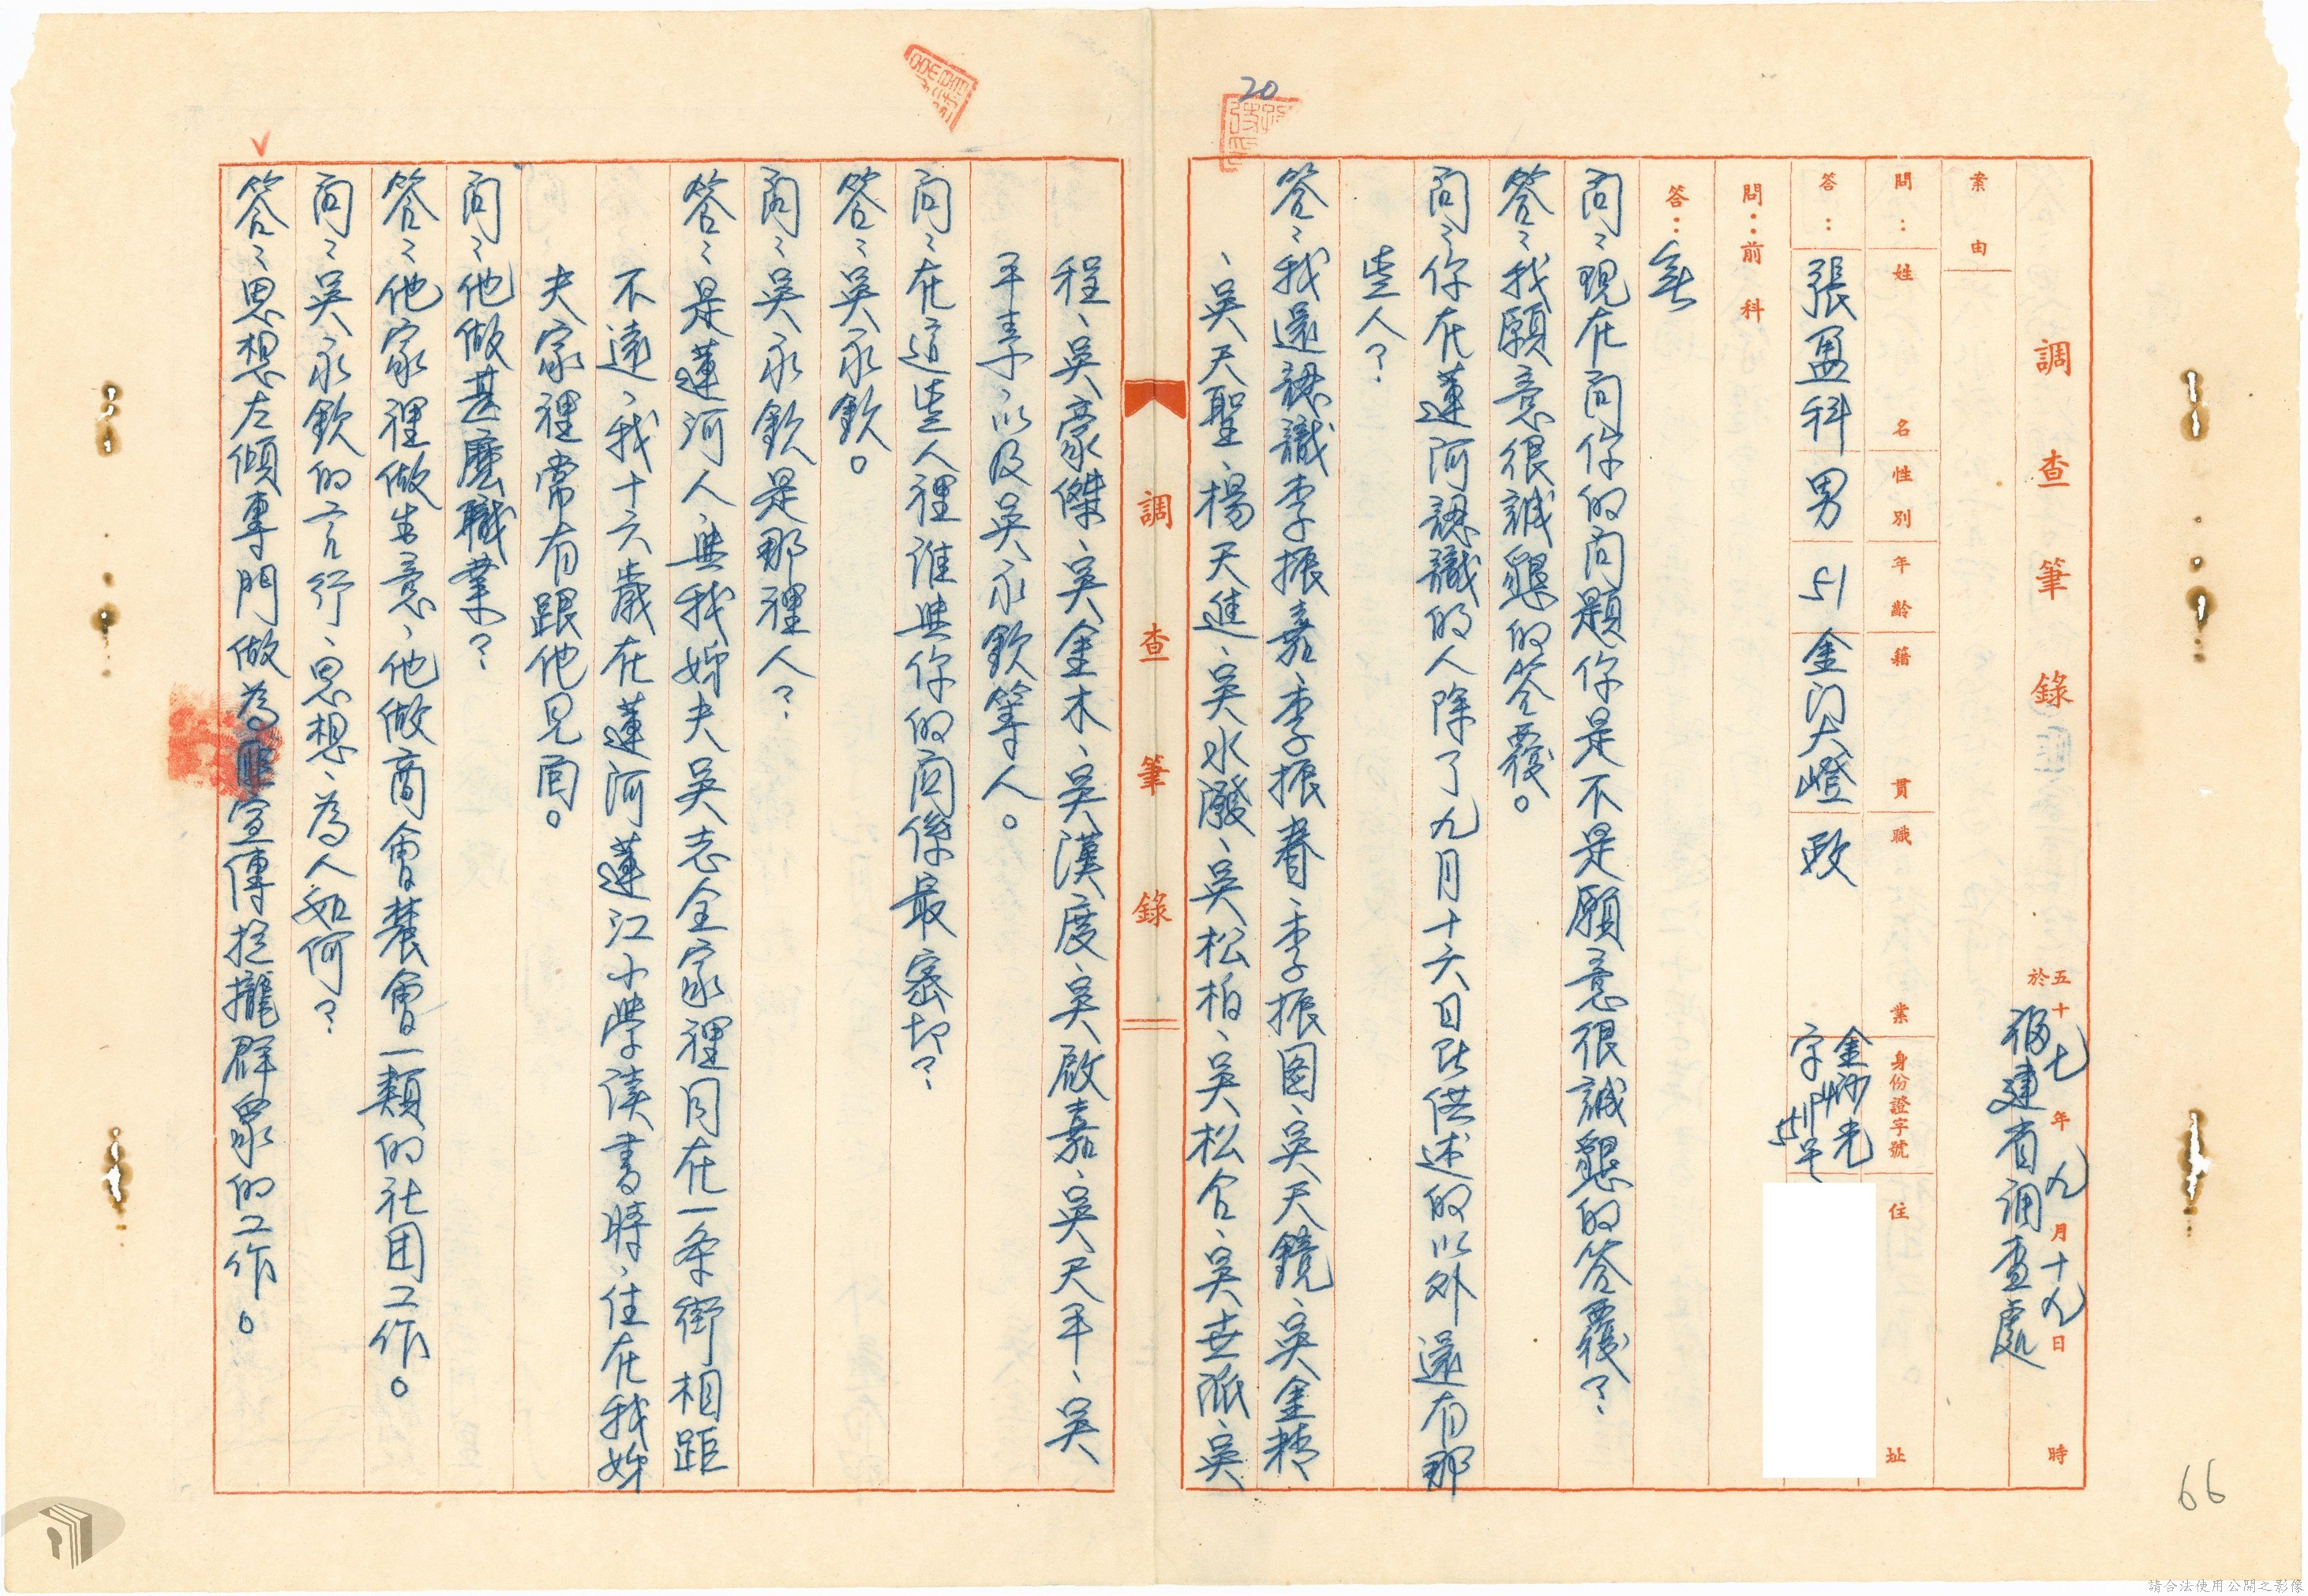 調查筆錄
五十七年九月十九日 時
於福建省調查處
案由
問：姓名 性別 年齡 籍貫 職業 身份證字號 住址
答：張盈科 男 51 金門大嶝 政 金沙光字
問：前科
答：無
問：現在問你的問題你是不是願意很誠懇的答覆？
答：我願意很誠懇的答覆。
問：你在蓮河認識的人除了九月十六日所供述的以外還有那
些人？
答：我還認識李振嘉、李振春、李振國、吳天鏡、吳金精
、吳天聖、楊天進、吳水潑、吳松柏、吳松合、吳世派、吳
20
調查筆錄
程、吳豪傑、吳金木、吳漢度、吳啟嘉、吳天平、吳
平青、以及吳永欽等人。
問：在這些人裡誰與你的關係最密切？
答：吳永欽。
問：吳永欽是那裡人？
答：是蓮河人、與我姊夫吳志全家裡同在一条街相距
不遠、我十六歲在蓮河蓮江小學讀書時、住在我姊
夫家裡常有跟他見面。
問：他做甚麼職業？
答：他家裡做生意、他做商會農會一類的社团工作。
問：吳永欽的言行、思想、為人如何？
答：思想左傾專門做為宣傳拉攏群眾的工作。
66
請合法使用公開之影像